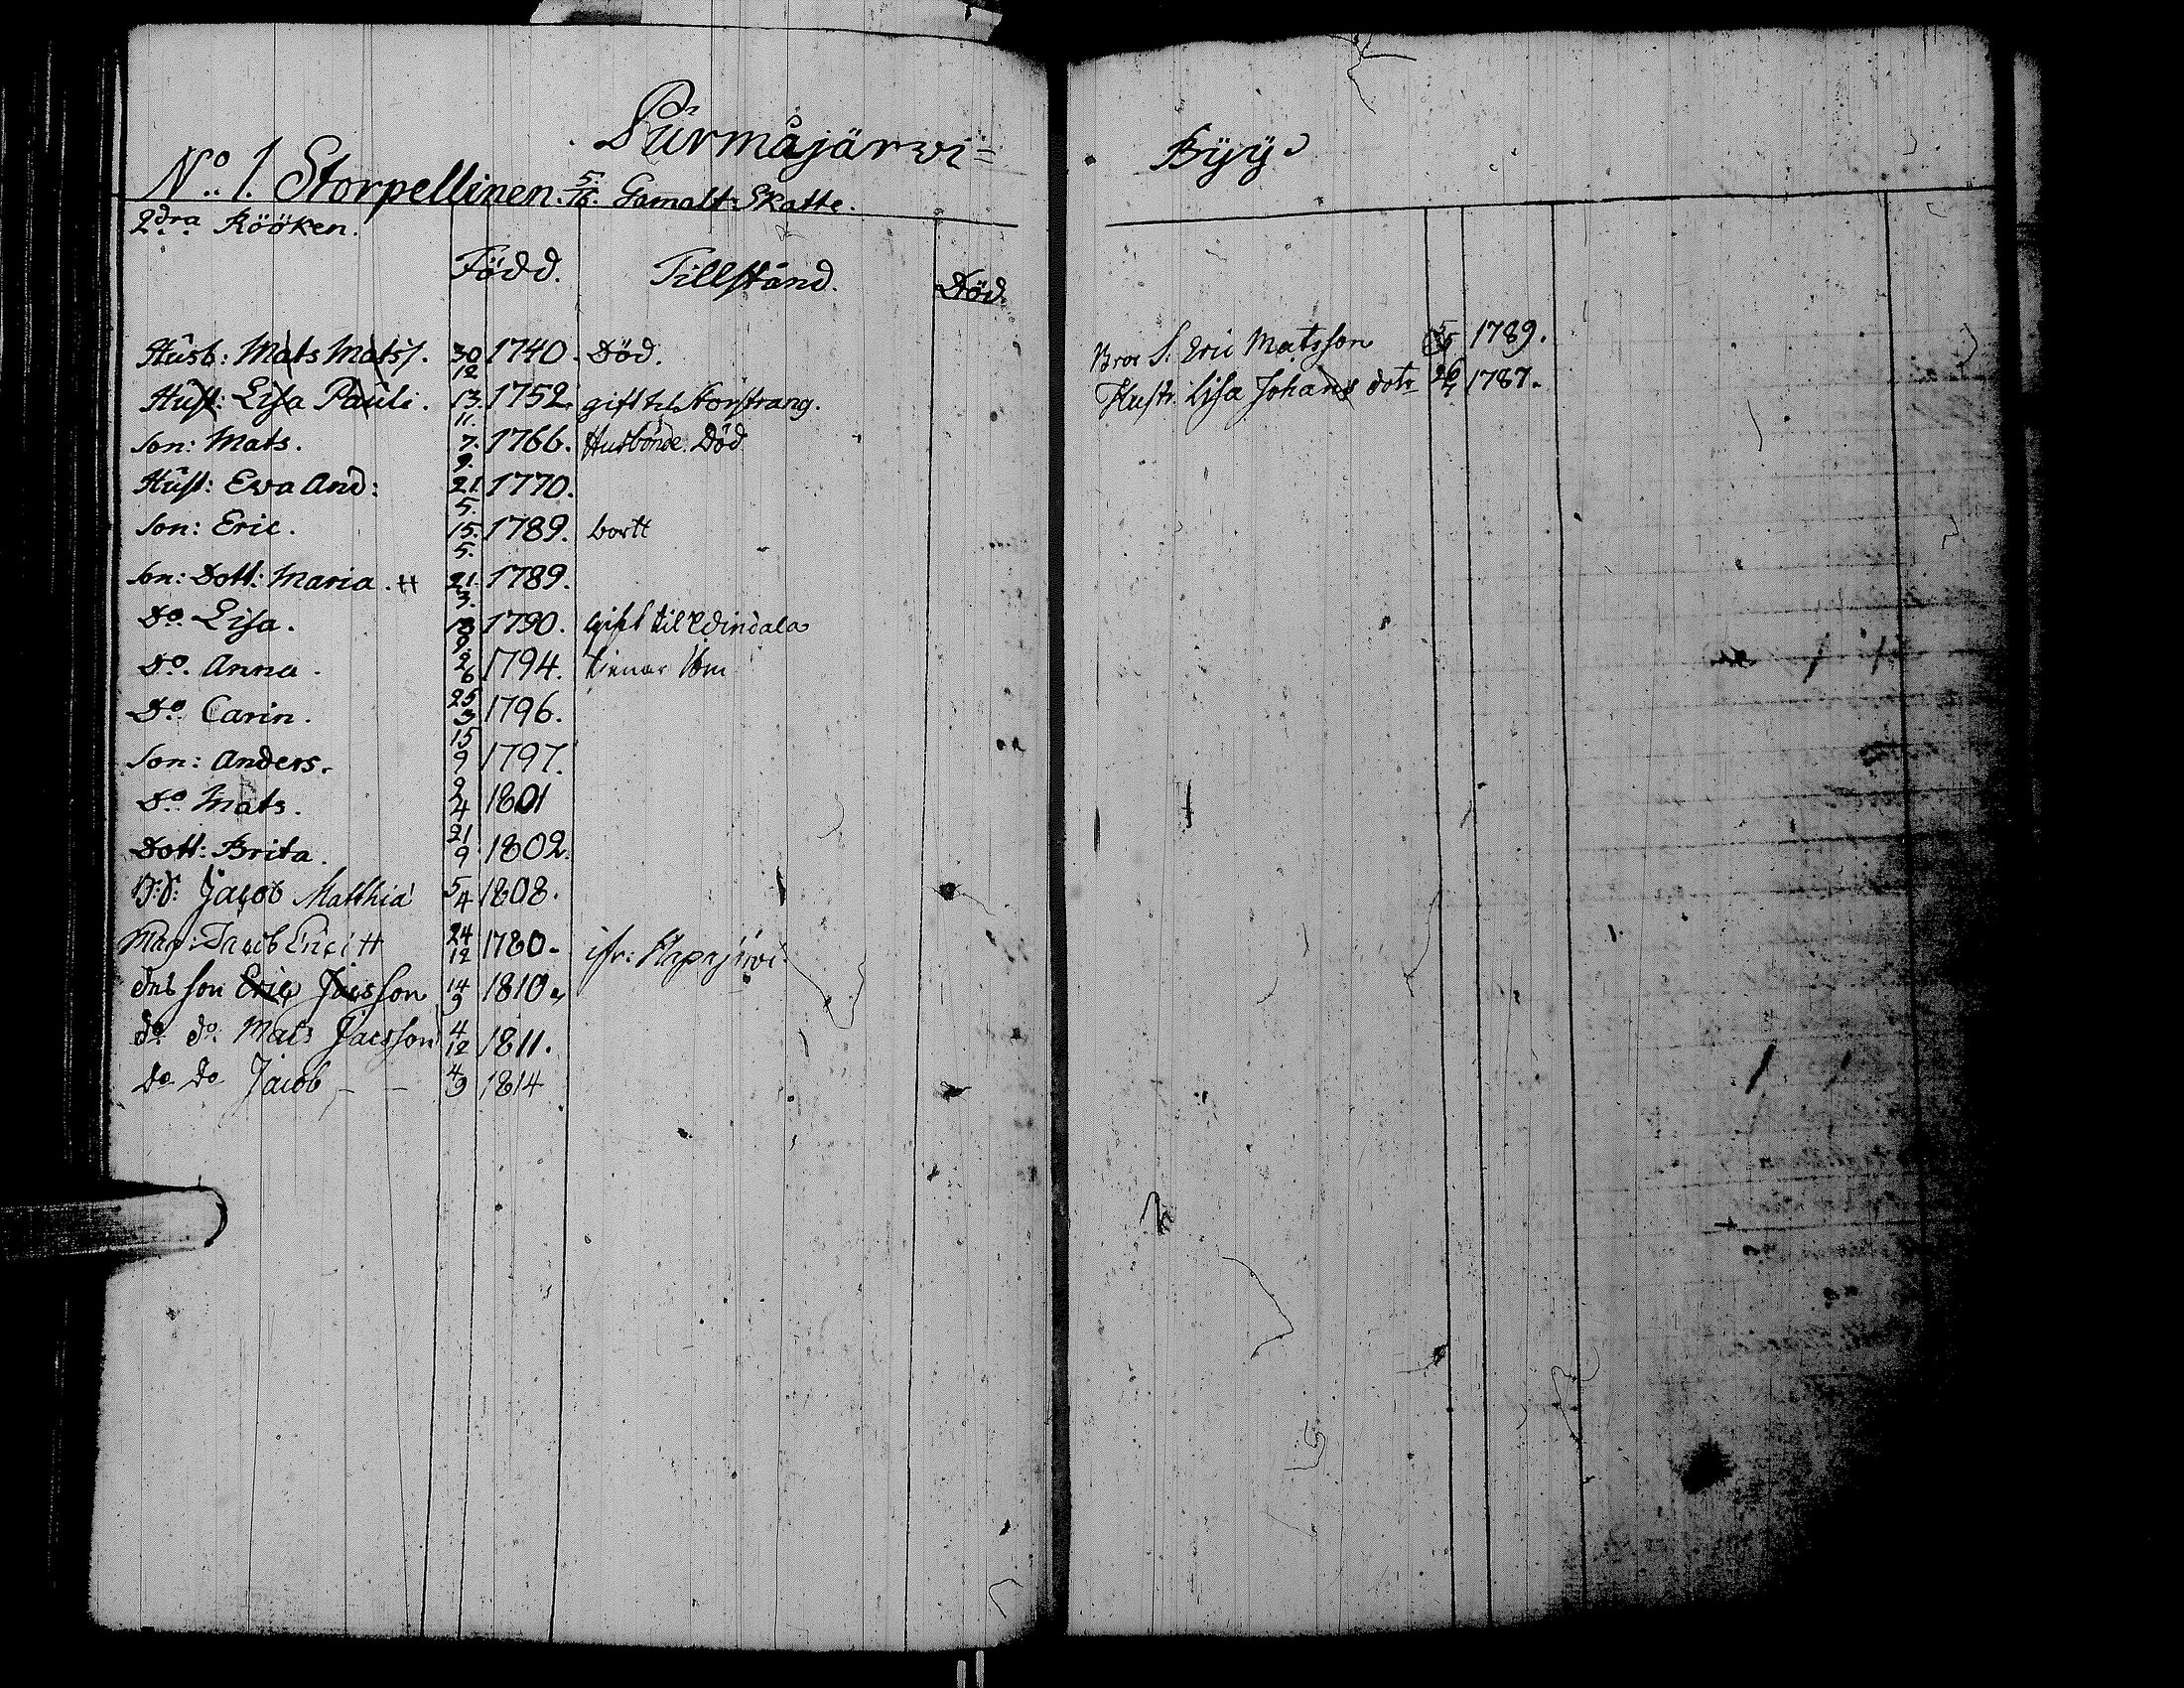 Purmåjärwi=
No. 1. Storpellinen. 5/16. Gamalt Skatte.
2dra Rööken.
Född. Tillstånd. Död.
Husb: Mats Matss. 30/12 1740. Död.
Hust: Lisa Pauli. 13/11. 1752. gift til Storstrang.
Son: Mats. 7/9. 1766. Husbonde. Död
Hust: Ewa And: 21/5. 1770.
Son: Eric. 15/5. 1789. bortt
Son: Dott: Maria. H 21/3. 1789.
Do. Lisa. 13/9 1790. gift til Windala
Do. Anna. 2/6 1794. tienar
Do Carin. 25/3 1796.
Son: Anders. 15/9 1797.
Do Mats. 2/4 1801
Dott: Brita. 21/9 1802.
Jacob Matthiæ 5/4 1808.
Mag: Jacob Erici H 24/12 1780.
Ds son Eric Jacsson 14/9 1810.
do do. Mats Jacsson 4/12 1811.
do do Jacob – – 4/9 1814
Byy.
Bror S. Eric Matsson 1789.
Hustr. Lisa Johans dotr 26/4 1787.